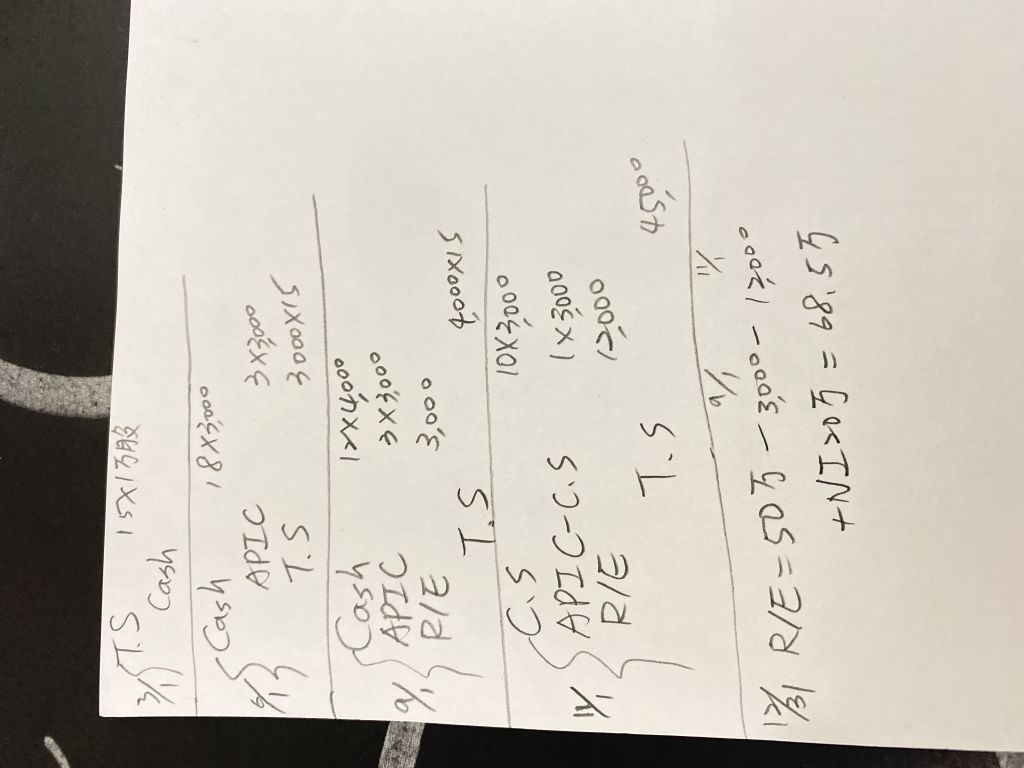 3/1 T.S 15×1万股
Cash
6/1 Cash 18×3,000
APIC 3×3,000
T.S 3000×15
9/1 Cash 12×4,000
APIC 3×3,000
R/E 3,000
T.S 4,000×15
11/1 C.S 10×3,000
APIC-C.S 1×3,000
R/E 12,000
T.S 45,000
9/1 11/1
12/31 R/E=50万-3,000-12,000
+NI20万=68.5万